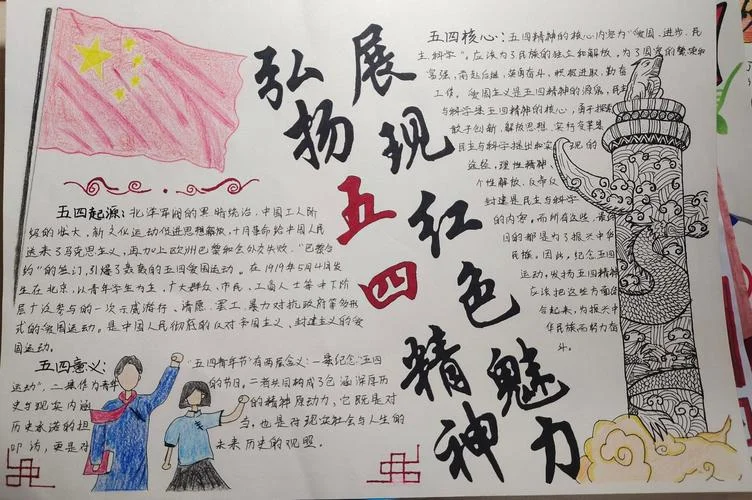 弘扬五四精神
展现红色魅力
五四核心：五四精神的核心内容为“爱国、进步、民
主、科学”。应该为了民族的独立和解放，为了国家的繁荣和
富强，前赴后继，英勇奋斗，积极进取，勤奋
工作。爱国主义是五四精神的源泉，民主
与科学是五四精神的核心，勇于探索
敢于创新、解放思想、实行变革是
民主与科学提出和实现的
途径，理性精神、
个性解放、反帝反
封建是民主与科学
的内容。而所有这些，最终
目的都是为了振兴中华
民族。因此，纪念五四
运动，发扬五四精神
应该把这些方面结
合起来，为振兴中
华民族而努力奋
斗。
五四起源：北洋军阀的黑暗统治，中国工人阶
级的壮大，新文化运动促进思想解放，十月革命给中国人民
送来了马克思主义，再加上欧洲巴黎和会外交失败，“巴黎合
约”的签订，引爆了轰轰的五四爱国运动。在1919年5月4日发
生在北京，以青年学生为主，广大群众、市民、工商人士等中下阶
层广泛参与的一次示威游行、请愿、罢工、暴力对抗政府等多形
式的爱国运动。是中国人民彻底的反对帝国主义、封建主义的爱
国运动。
五四意义：
“五四青年节”有两层含义：一是纪念“五四
运动”，二是作为青年的节日。二者共同构成了包涵深厚历
史与现实内涵的精神原动力，它既是对
历史承诺的担当，也是对现实社会与人生的
叩访，更是对未来历史的观照。